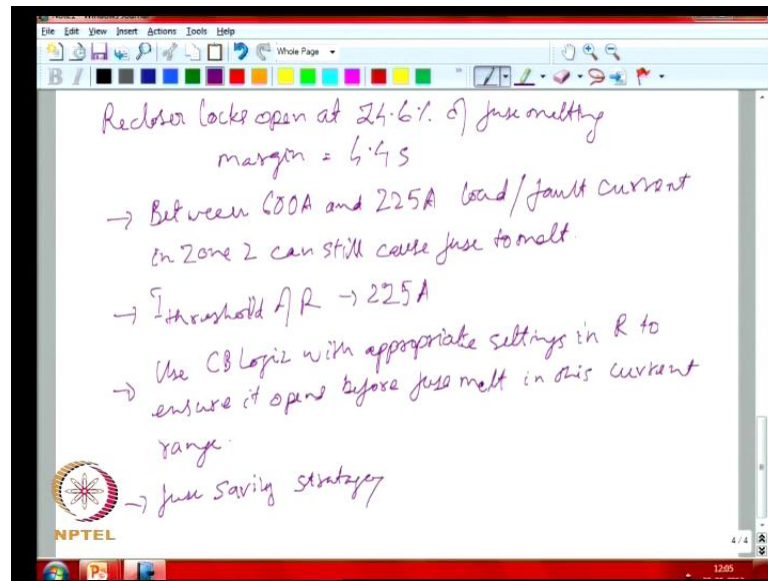 File Edit View Insert Actions Tools Help
Whole Page
B I
Recloser locks open at 24.6% of fuse melting
margin = 4.4s
→ Between 600A and 225A load/fault current
in Zone 2 can still cause fuse to melt.
→ Ithreshold of R → 225A
→ Use CB Logic with appropriate settings in R to
ensure it opens before fuse melt in this current
range.
→ fuse saving strategy
NPTEL
4/4
12:05